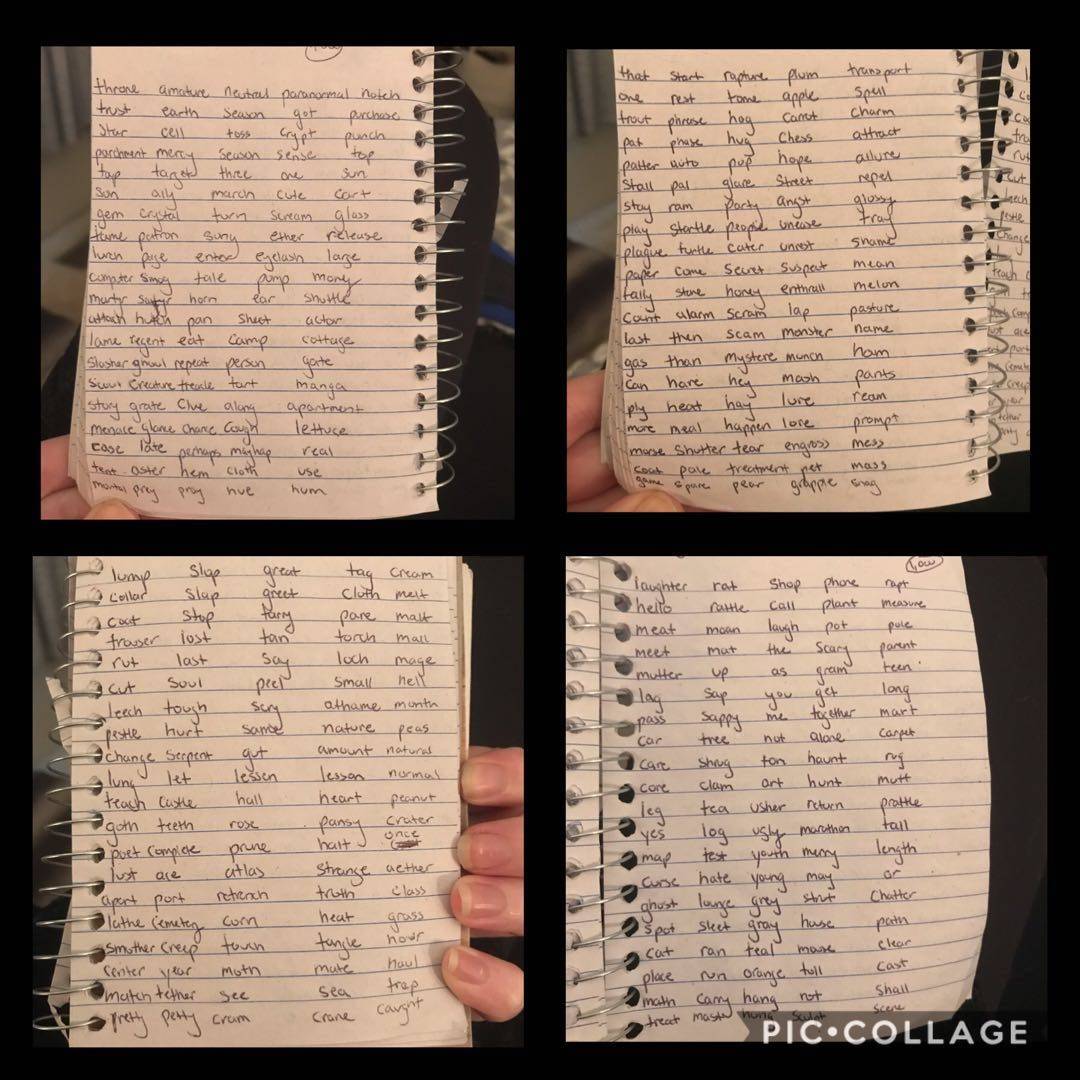 throne amature neutral paranormal notch
trust earth season got purchase
star cell toss crypt punch
parchment mercy season sense top
tap target three one sun
son ally march cute cart
gem crystal turn scream glass
tame patron sung ether release
lurch page enter eyelash large
computer smog tale pump money
martyr satyr horn ear shuttle
attach hutch pan sheet actor
lame regent eat camp cottage
slasher ghoul repeat person gate
creature treacle tart manga
story grate clue along apartment
menace glame chance cough lettuce
case late perhaps mayhap real
tent aster hem cloth use
mortal prey pray hue hum
that start rapture plum transport
one rest tome apple spell
trout phrase hag carrot charm
pat phase hug chess attract
patter auto pup hope allure
stall pal glare street repel
stay ram party angst glossy
play startle people unease tray
plague turtle cater unrest shame
paper come secret suspect mean
tally stone honey enthrall melon
count alarm scram lap pasture
last then scam monster name
gas than mystere munch ham
can hare hey mash pants
ply heat hay lure ream
more meal happen lore prompt
morse shutter tear engross mess
coat pale treatment pet mass
game spare pear grapple snag
lump slop great tag cream
collar slap greet cloth melt
coat stop tarry pare malt
trouser lost tan torch mall
rut last say loch mage
cut soul peel small hell
leech tough scry athame month
pestle hurt same nature peas
change serpent gut amount natural
lung let lessen lesson normal
teach castle hall heart peanut
goth teeth rose pansy crater
poet complete prune halt once
lust ace atlas strange aether
apart port retrench truth class
lathe cemetery corn heat grass
smother creep touch tangle hour
center year moth mate haul
match tether see sea trap
pretty petty cram crane caught
laughter rat shop phone rapt
hello rattle call plant measure
meat moan laugh pot pole
meet mat the scary parent
mutter up as gram teen
lag sap you get long
pass sappy me together mart
car tree not alone carpet
care shrug ton haunt rug
core clam art hunt mutt
leg tea usher return prattle
yes log ugly marathon tall
map test youth merry length
curse hate young may or
ghost lounge grey strut chatter
spot sleet gray house path
cat ran teal mouse clear
place run orange toll cast
math carry hang not shall
treat hung sculpt scene
PIC•COLLAGE